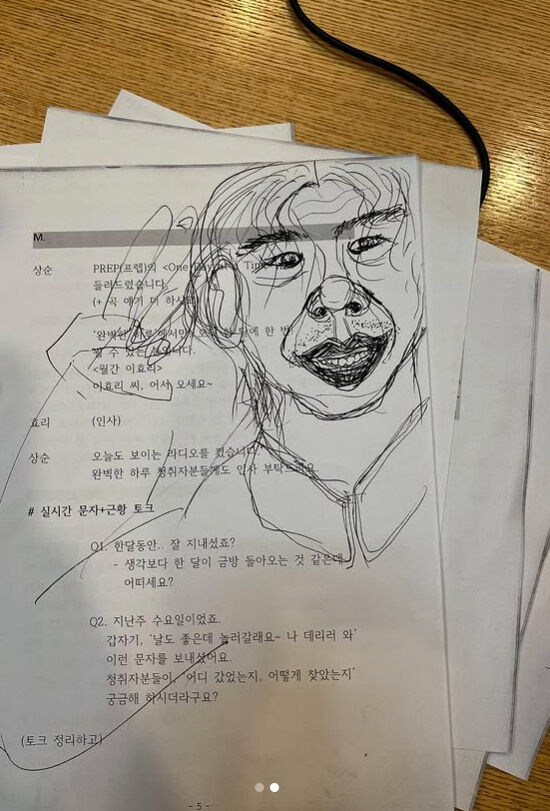 M.
상순 PREP(프렙)의 <One
들려드렸습니다.
(+ 곡 얘기 더 하시고
'완벽한 하루'에서만 한 번
수 있는
<월간 이효리>
이효리 씨, 어서 오세요~
효리 (인사)
상순 오늘도 보이는 라디오를 켰습니다.
완벽한 하루 청취자분들께도 인사
# 실시간 문자+근황 토크
Q1. 한달동안.. 잘 지내셨죠?
- 생각보다 한 달이 금방 돌아오는 것 같은데
어떠세요?
Q2. 지난주 수요일이었죠.
갑자기, '날도 좋은데 놀러갈래요~ 나 데리러 와'
이런 문자를 보내셨어요.
청취자분들이, '어디 갔었는지, 어떻게 찾았는지'
궁금해 하시더라구요?
(토크 정리하고)
- 5 -